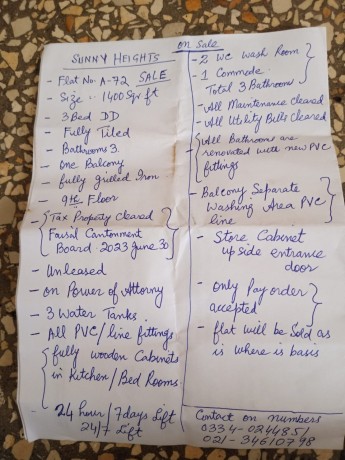 on Sale
SUNNY HEIGHTS
- Flat No. A-72 SALE
- Size . 1400 Sqr ft
- 3 Bed DD
- Fully Tiled
- Bathrooms 3.
- one Balcony
- fully grilled Iron
- 9th Floor
- Tax Property Cleared
Faisal Cantonment
Board 2023 June 30
- Unleased
- on Power of Attorny
- 3 Water Tanks.
- All PVC/line fittings
fully wooden Cabinets
in Kitchen/Bed Rooms
- 24 hour/7days Lift
24/7 Lift
- 2 WC Wash Room
- 1 Commede.
Total 3 Bathrooms
- All Maintenance Cleared
- All Utility Bills Cleared
- All Bathrooms are
renovated with new PVC
fittings
- Balcony Separate
Washing Area PVC
line
- Store Cabinet
up side entrance
door
- only Pay order
accepted
- flat will be Sold as
is where is basis
Contact on numbers
0334-0244851
021-34610798